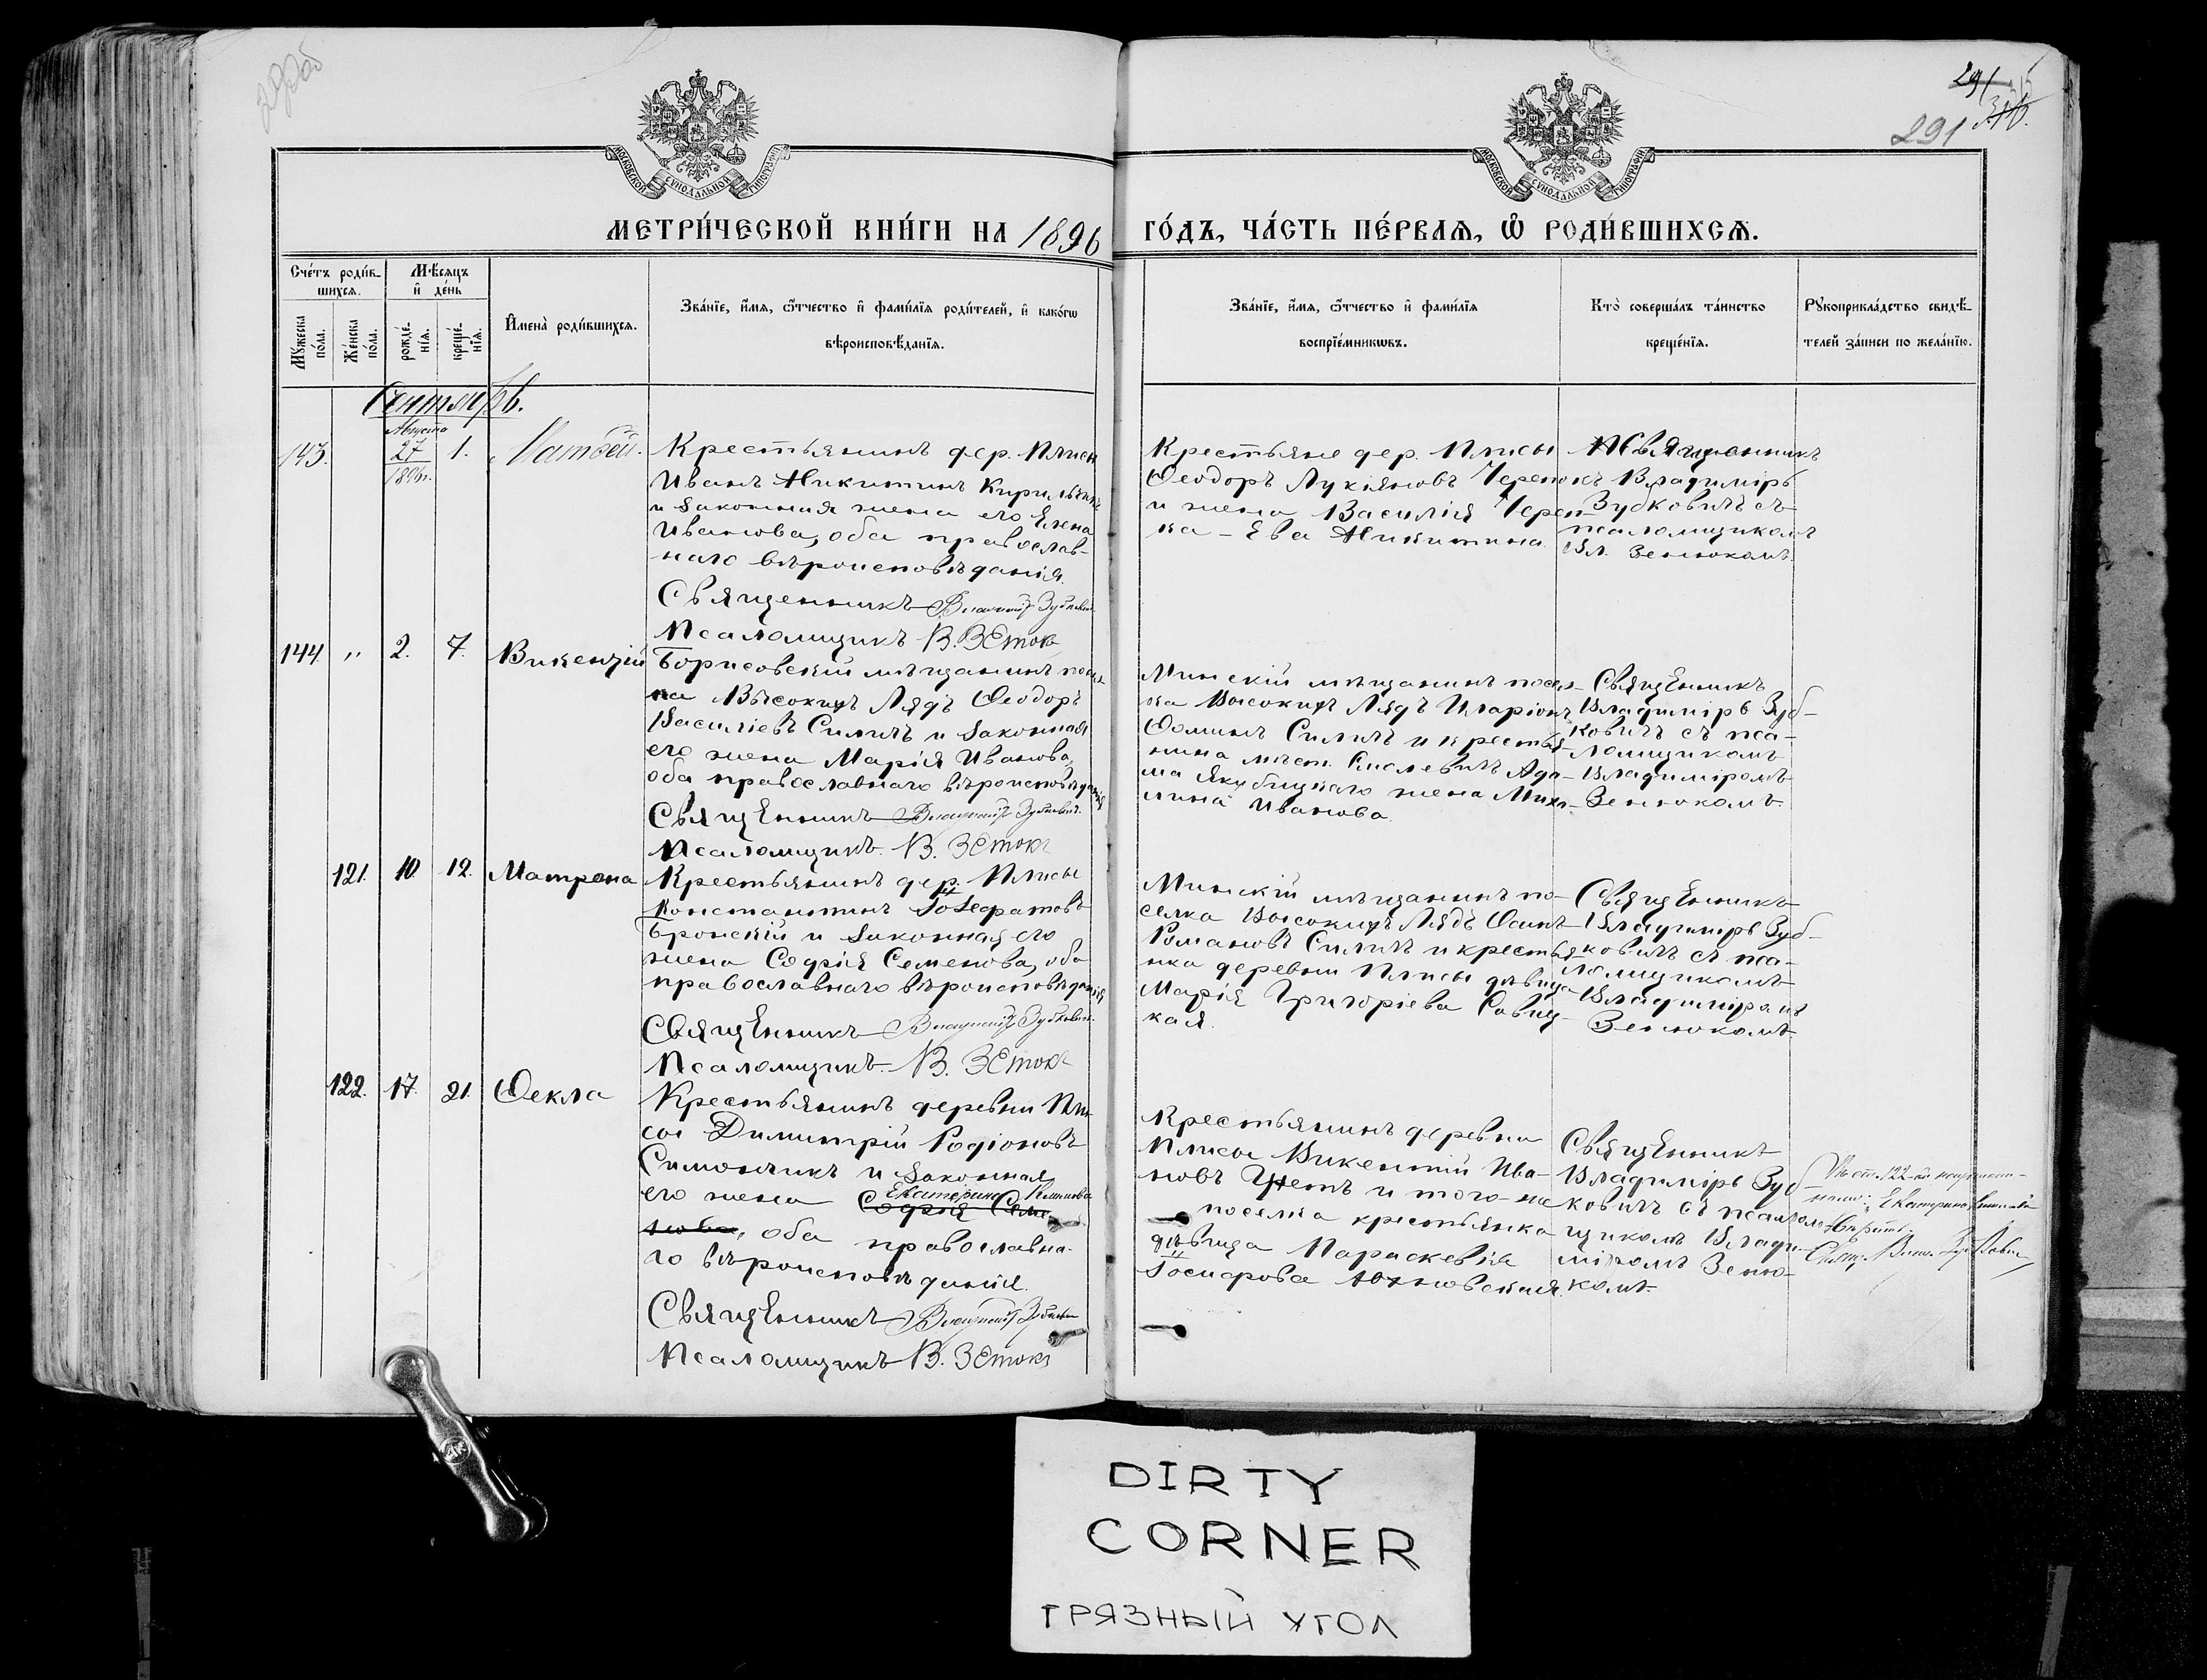 291
291
МОСКОВСКОЙ СѴНОДАЛЬНОЙ ТИПОГРАФІИ
МОСКОВСКОЙ СѴНОДАЛЬНОЙ ТИПОГРАФІИ
МЕТРИ́ЧЕСКОЙ КНИ́ГИ НА 1896 ГО́ДЪ, ЧА́СТЬ ПЕ́РВАѦ, Ѡ҆ РОДИ́ВШИХСѦ.
Сче́тъ роди́в-
шихсѧ.
Мѣ́сѧцъ
и҆ де́нь
Мꙋ́жеска по́ла.
Же́нска по́ла.
рожде́-
нїѧ.
креще́-
нїѧ.
И҆мена̀ роди́вшихсѧ.
Зва́нїе, и҆́мѧ, ѻ҆́тчество и҆ фами́лїѧ роди́телей, и҆ како́гѡ
вѣроисповѣ́данїѧ.
Зва́нїе, и҆́мѧ, ѻ҆́тчество и҆ фами́лїѧ
воспрїе́мникѡвъ.
Кто̀ соверша́лъ та́инство
креще́нїѧ.
Рꙋкоприкла́дство свидѣ́-
телей за́писи по жела́нїю.
Сентябрь.
143.
Августа
27
1896 г.
1.
Матвей.
Крестьянинъ дер. Плисы
Иванъ Никитинъ
и законная жена его Елена
Иванова, оба православ-
наго вѣроисповѣданія.
Священникъ Владиміръ Зубковичъ
Псаломщикъ В. Зенюкъ
Крестьяне дер. Плисы
Ѳеодоръ Лукіяновъ Черепокъ
и жена Василія Череп-
ка - Ева Никитина.
Священникъ
Владиміръ
Зубковичъ съ
псаломщикомъ
Вл. Зенюкомъ.
144. " 2. 7. Викентій
Борисовскій мѣщанинъ посел-
ка Высокихъ Лядъ Ѳеодоръ
Василіевъ Силичъ и законная
его жена Марія Иванова,
оба православнаго вѣроисповѣданія
Священникъ Владиміръ Зубковичъ
Псаломщикъ В. Зенюкъ
Минскій мѣщанинъ посел-
ка Высокихъ Лядъ Иларіонъ
Ѳоминъ Силичъ и крестья-
нина мѣст. Смолевичъ Ада-
ма Якубицкаго жена Миха-
лина Иванова.
Священникъ
Владиміръ Зуб-
ковичъ съ пса-
ломщикомъ
Владиміромъ
Зенюкомъ
121. 10. 12. Матрона
Крестьянинъ дер. Плисы
Константинъ
Бронскій и законная его
жена Софія Семенова, оба
православнаго вѣроисповѣданія
Священникъ Владиміръ Зубковичъ
Псаломщикъ В. Зенюкъ
Минскій мѣщанинъ по-
селка Высокихъ Лядъ Осипъ
Романовъ Силичъ и крестья-
нка деревни Плисы дѣвица
Марія Григоріева Савиц-
кая.
Священникъ
Владиміръ Зуб-
ковичъ съ пса-
ломщикомъ
Владиміромъ
Зенюкомъ
122. 17. 21. Ѳекла
Крестьянинъ деревни Пли-
сы Димитрій Родіоновъ
Симончикъ и законная
его жена Софія Семе-
Екатерина Климова
нова, оба православна-
го вѣроисповѣданія.
Священникъ Владиміръ Зубковичъ
Псаломщикъ В. Зенюкъ
Крестьянинъ деревни
Плисы Викентій Ива-
новъ и того-же
поселка крестьянка
дѣвица Параскевія
Госпарова
Священникъ
Владиміръ Зуб-
ковичъ съ псалом-
щикомъ Влади-
міромъ Зеню-
комъ
Въ ст. 122-ой
Екатерина Климова
вѣрить.
Свящ. Влад. Зубкович
DIRTY
CORNER
ГРЯЗНЫЙ УГОЛ